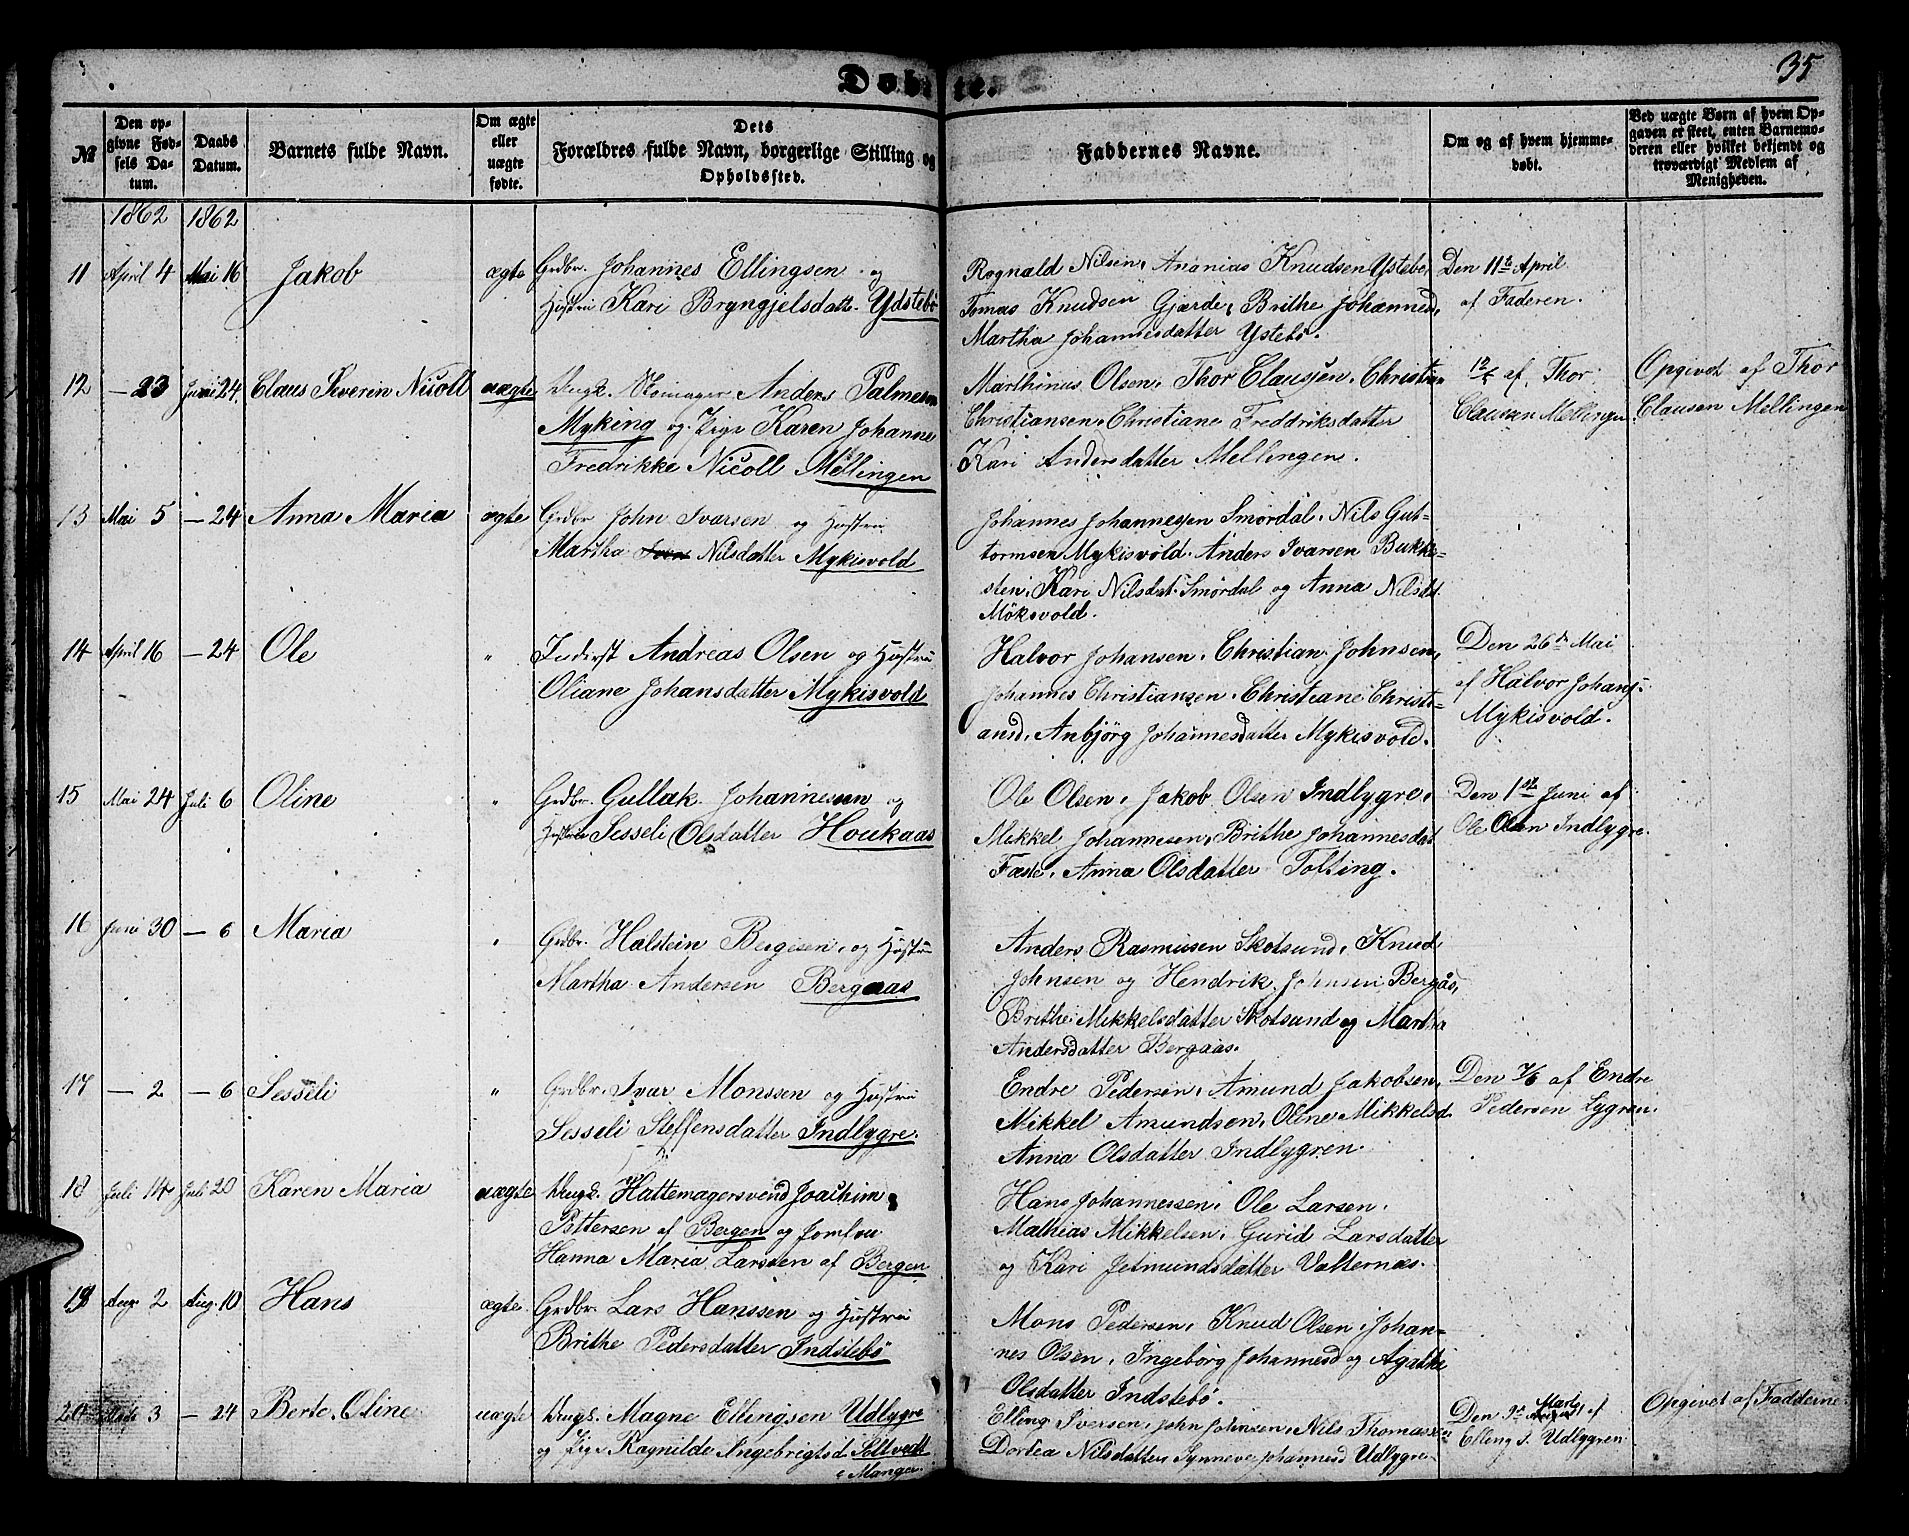 35
Døbte.
№
Den opgivne Fødsels Datum.
Daabs Datum.
Barnets fulde Navn.
Om ægte eller uægte fødte.
Dets Forældres fulde Navn, borgerlige Stilling og Opholdssted.
Faddernes Navne.
Om og af hvem hjemmedøbt.
Ved uægte Børn af hvem Opgaven er skeet, enten Barnemoderen eller hvilket bekjendt og troværdigt Medlem af Menigheden.
1862 1862
11 April 4 Mai 16 Jakob ægte Grdbr. Johannes Ellingsen og
Hustru Kari Bryngjelsdatte. Ydstebø
Rognald Nilsen, Ananias Knudsen Ystebø,
Tomas Knudsen Gjærde, Brithe Johannesd,
Martha Johannesdatter Ystebø.
Den 11te April
af Faderen.
12 — 23 Juni 24. Claus Severin Nicoll uægte Ungk. Anders Palmesen
Myking og Pige Karen Johanne
Fredrikke Nicoll Mellingen
Marthinus Olsen, Thor Clausen, Christian
Christiansen, Christiane Freddriksdatter
Kari Andersdatter Mellingen.
af Thor
Clausen Mellingen
Opgivet af Thor
Clausen Mellingen
13 Mai 5 — 24 Anna Maria ægte Grdbr John Ivarsen og Hustru
Martha Nilsdatter Mykisvold
Johannes Johannessen Smørdal, Nils Gut-
tormsen Mykisvold. Anders Ivarsen Bukke-
stein, Kari Nilsdat. Smørdal og Anna Nilsdt.
Möksvold.
14 April 16 — 24 Ole " Inderst Andreas Olsen og Hustru
Oliane Johansdatter Mykisvold
Halvor Johansen, Christian Johnsen,
Johannes Christiansen, Christiane Christi-
ansd, Anbjørg Johannesdatter Mykisvold.
Den 26de Mai
af Halvor Johans:
Mykisvold.
15 Mai 24 Juli 6 Oline " Grdbr. Gullak Johannesen og
Hustru Sesseli Olsdatter Houkaas
Ole Olsen, Jakob Olsen Indlygre,
Mikkel Johannesen, Brithe Johannesdat
Fæste, Anna Olsdatter Tolting.
Den 1ste Juni af
Ole Olsen Indlygre.
16 Juni 30 — 6 Maria " Grdbr. Halstein Bergesen, og Hustru
Martha Andersen Bergaas
Anders Rasmusen Skotsund, Knud
Johnsen og Hendrik Johnsen Bergås,
Brithe Mikkelsdatter Skotsund og Martha
Andersdatter Bergaas.
17 — 2 — 6 Sesseli " Grdbr. Ivar Monssen og Hustru
Sesseli Steffensdatter Indlygre.
Endre Pedersen, Amund Jakobsen,
Mikkel Amundsen, Oline Mikkelsd.
Anna Olsdatter Indlygren.
Den 7/6 af Endre
Pedersen Lygren.
18 Juli 14 Juli 20 Karen Maria uægte Ungk. Hattemagersvend Joachim
Pettersen af Bergen og Jomfru
Hanna Maria Larssen af Bergen
Hans Johannessen, Ole Larsen,
Mathias Mikkelsen, Gurid Larsdatter
og Kari Jetmundsdatter Valternæs.
19 Aug. 2 Aug. 10 Hans ægte. Grdbr. Lars Hanssen og Hustru
Brithe Pedersdatter Indstebø
Mons Pedersen, Knud Olsen, Johan-
nes Olsen, Ingeborg Johannesd og Agathe
Olsdatter Indstebø.
20 3 — 24 Berte Oline uægte Ungk. Magne Ellingsen Udlygre
og Pige Ragnilde Ingebrigtsd. Soltvedt
Manger.
Elling Iversen, John Johnsen, Nils Thomassen
Dortea Nilsdatter, Synneve Johannesd Udlygre.
Den 9de Marts af
Elling I. Udlygren
Opgivet af Fadderne